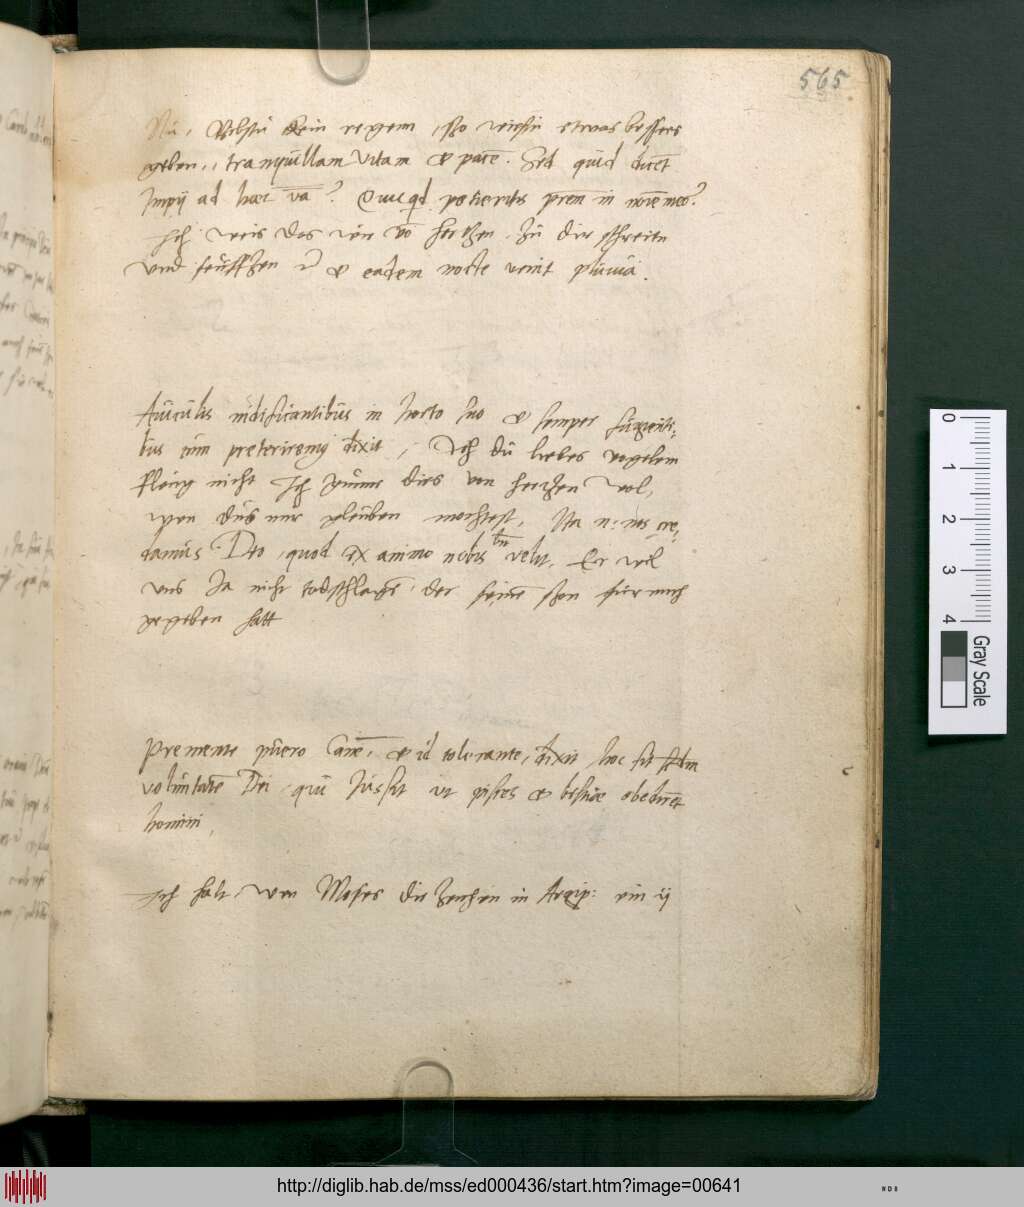 565
Nu, wilstu kein regenn, so wirstu etwas bessers
geben, tranquillam vitam et pacē. Sed quid dicēt
Impij ad hoc? Quicqd petieritis prem in noīe meo?
Ich weis das wir vō hertzen zu dir schreien
vnd seufftzen et eadem nocte venit pluuia.
Auiculis nidificantibus in horto suo et semper fugienti-
bus cum preterirent dixit, Ach du liebes vogelein
fleug nicht Ich gunne dirs von hertzen wol,
wen dus mir gleuben mochtest, Ita n: nos cre-
damus Deo, quod ex animo nobis bn̄ velit. Er wil
vns Ja nicht todschlagē der seinē son fur mich
gegeben hatt
Premente puero Canē, et id tolerante, dixit, hoc fit scdm
voluntatē Dei, qui iussit vt pisces et bestiae obedirēt
homini
Ich halt, wen Moses die zeichen in Aegip: ein ij
0 1 2 3 4
Gray Scale
http://diglib.hab.de/mss/ed000436/start.htm?image=00641